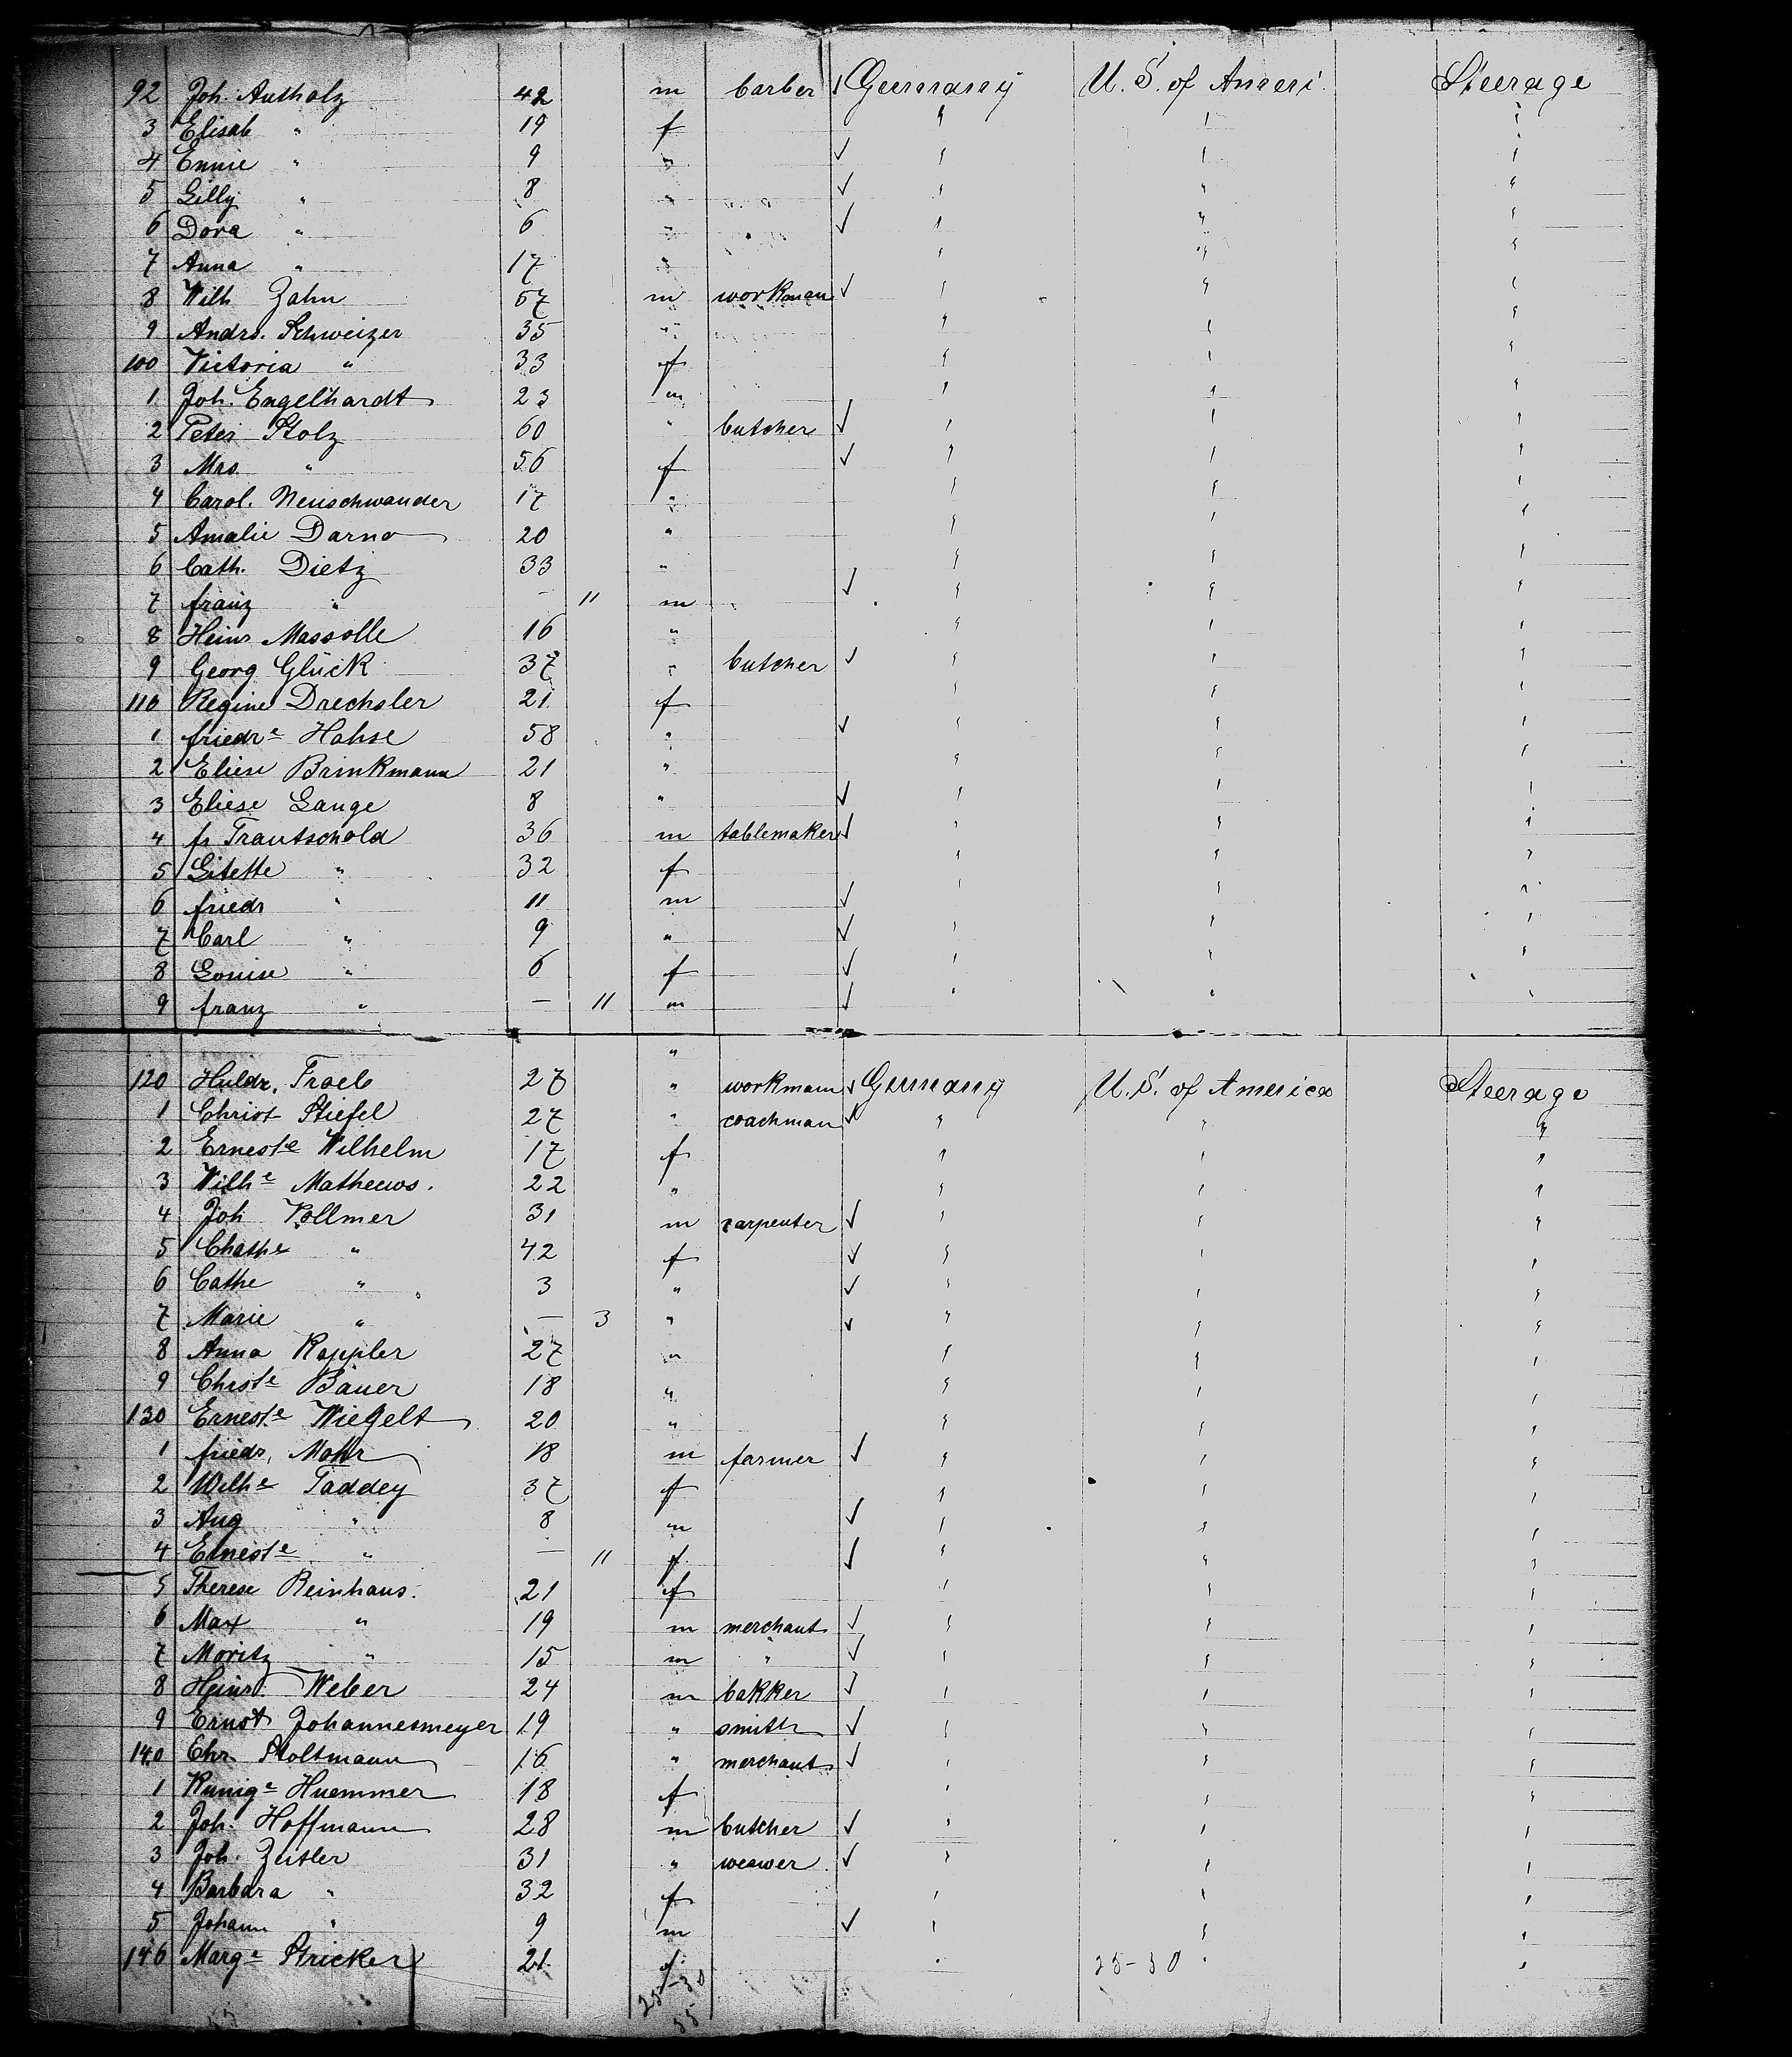 92 Joh. Autholz 42 m barber ✓ Germany U. S. of Ameri. Steerage
3 Elisab " 19 f " " "
4 Ennie " 9 " ✓ " " "
5 Lilly " 8 " ✓ " " "
6 Dora " 6 " ✓ " " "
7 Anna " 17 " " " "
8 Wilh Zahn 57 m workman ✓ " " "
9 Andrs. Schweizer 35 " " " "
100 Victoria " 33 f " " "
1 Joh. Engelhardt 23 m " " "
2 Peter Stolz 60 " butcher ✓ " " "
3 Mrs. " 56 f ✓ " " "
4 Carol. Neuschwander 17 " " " "
5 Amalie Darno 20 " " " "
6 Cath. Dietz 33 " " " "
7 franz " – 11 m ✓ " " "
8 Heinr Massolle 16 " " " "
9 Georg Glück 37 " butcher ✓ " " "
110 Regine Drechsler 21 f " " "
1 friedre Hahse 58 " ✓ " " "
2 Eliese Brinkmann 21 " " " "
3 Eliese Lange 8 " ✓ " " "
4 fr Trautschold 36 m tablemaker ✓ " " "
5 Litette " 32 f " " "
6 friedr " 11 m ✓ " " "
7 Carl " 9 " ✓ " " "
8 Louise " 6 f ✓ " " "
9 franz " – 11 m ✓ " " "
"
120 Huldr. Traeb 27 " workmann ✓ Germany U. S. of America Steerage
1 Christ Stiefel 27 " coachman ✓ " " "
2 Erneste Wilhelm 17 f " " "
3 Wilhe Matheews. 22 " " " "
4 Joh Vollmer 31 m carpenter ✓ " " "
5 Chathe " 42 f ✓ " " "
6 Cathe " 3 " ✓ " " "
7 Marie " – 3 " ✓ " " "
8 Anna Kappler 27 " " " "
9 Chrste Bauer 18 " " " "
130 Erneste Wiegelt 20 " " " "
1 friedr, Mohr 18 m farmer ✓ " " "
2 Wilhe Taddey 37 f " " "
3 Aug " 8 m ✓ " " "
4 Erneste " – 11 f ✓ " " "
5 Therese Reinhaus. 21 f " " "
6 Max " 19 m merchant ✓ " " "
7 Moritz " 15 m " ✓ " " "
8 Heinr. Weber 24 m bakker ✓ " " "
9 Ernst Johannesmeyer 19 " smith ✓ " " "
140 Chr. Stoltmann 16 " merchant ✓ " " "
1 Kunige Huemmer 18 f " " "
2 Joh. Hoffmann 28 m butcher ✓ " " "
3 Joh. Zeitler 31 " weawer ✓ " " "
4 Barbara " 32 f " " "
5 Johann " 9 m ✓ " " "
146 Marge Stricker 21 f " 25-30 " "
25-30
35